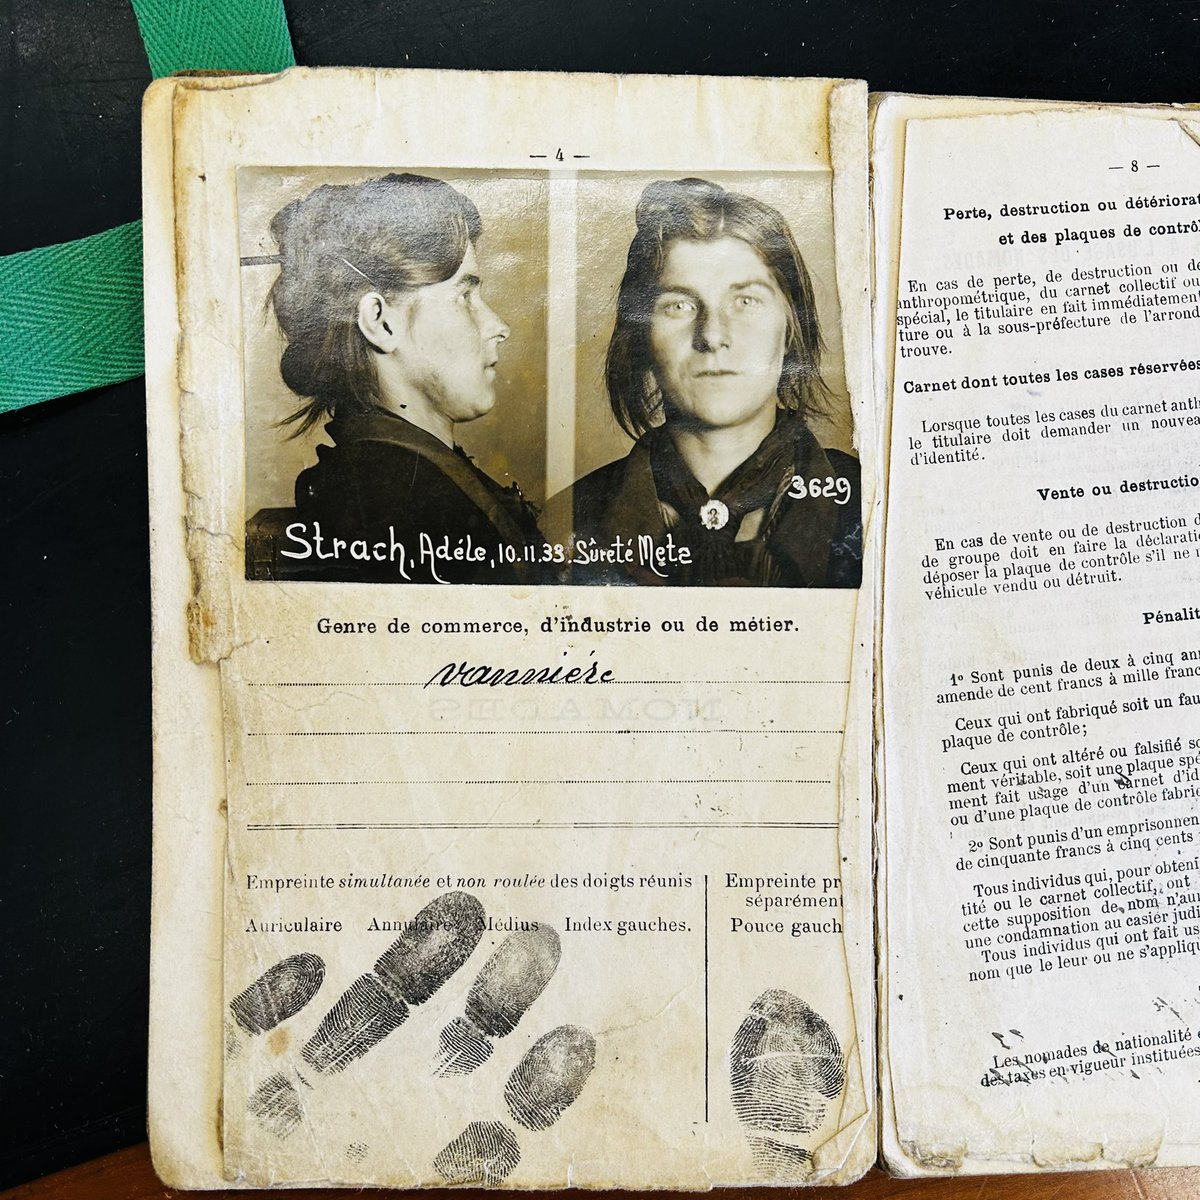 — 4 —
3629
Strach, Adéle, 10.11.33. Sûreté Metz
Genre de commerce, d'industrie ou de métier.
vannière
Empreinte simultanée et non roulée des doigts réunis
Auriculaire Annulaire Médius Index gauches.
Empreinte pr
séparément
Pouce gauch
— 8 —
Perte, destruction ou détériorat
et des plaques de contrôl
En cas de perte, de destruction ou de
anthropométrique, du carnet collectif ou
spécial, le titulaire en fait immédiatement
ture ou à la sous-préfecture de l'arrond
trouve.
Carnet dont toutes les cases réservées
Lorsque toutes les cases du carnet anth
le titulaire doit demander un nouvea
d'identité.
Vente ou destructio
En cas de vente ou de destruction d
de groupe doit en faire la déclarati
déposer la plaque de contrôle s'il ne r
véhicule vendu ou détruit.
Pénalit
1º Sont punis de deux à cinq ann
amende de cent francs à mille franc
Ceux qui ont fabriqué soit un fau
plaque de contrôle;
Ceux qui ont altéré ou falsifié so
ment véritable, soit une plaque spé
ment fait usage d'un carnet d'id
ou d'une plaque de contrôle fabrie
2º Sont punis d'un emprisonnen
de cinquante francs à cinq cents
Tous individus qui, pour obteni
tité ou le carnet collectif, ont
cette supposition de nom n'aur
une condamnation au casier judi
Tous individus qui ont fait us
nom que le leur ou ne s'appliqu
Les nomades de nationalité é
des taxes en vigueur instituées